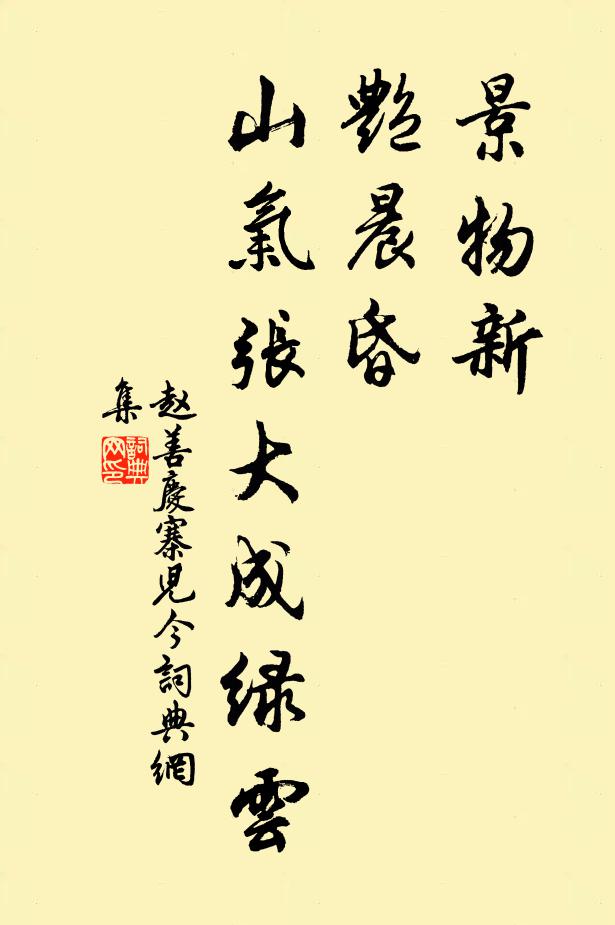 景物新
艷晨昏
山氣張大成綠雲
赵善慶寨児今詞典網
集
詞典網印